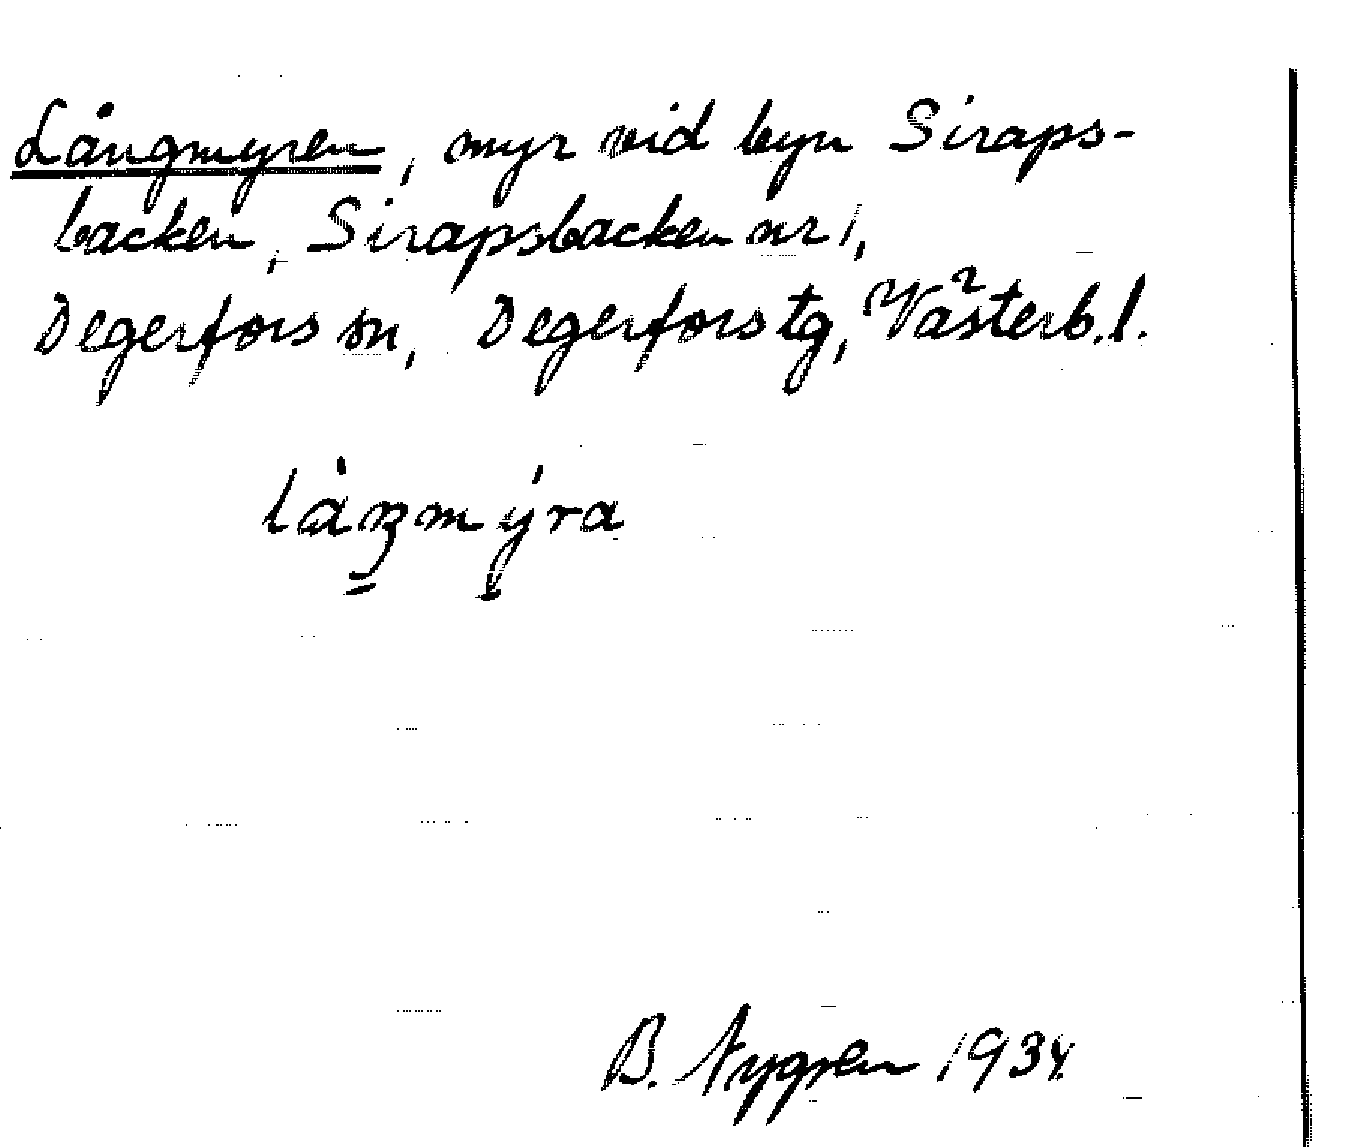 Långmyren, myr vid byn Siraps-
backen, Sirapsbacken nr 1,
Degerfors sn, Degerfors tg, Västerb. l.
låŋmýra
B. Nygren 1934.